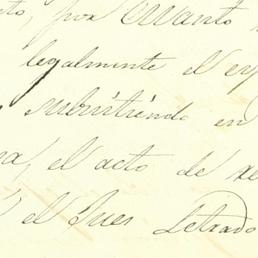 to, por cuanto
legalmente el ex
subsistiendo en
el acto de re
el Juez Letrado